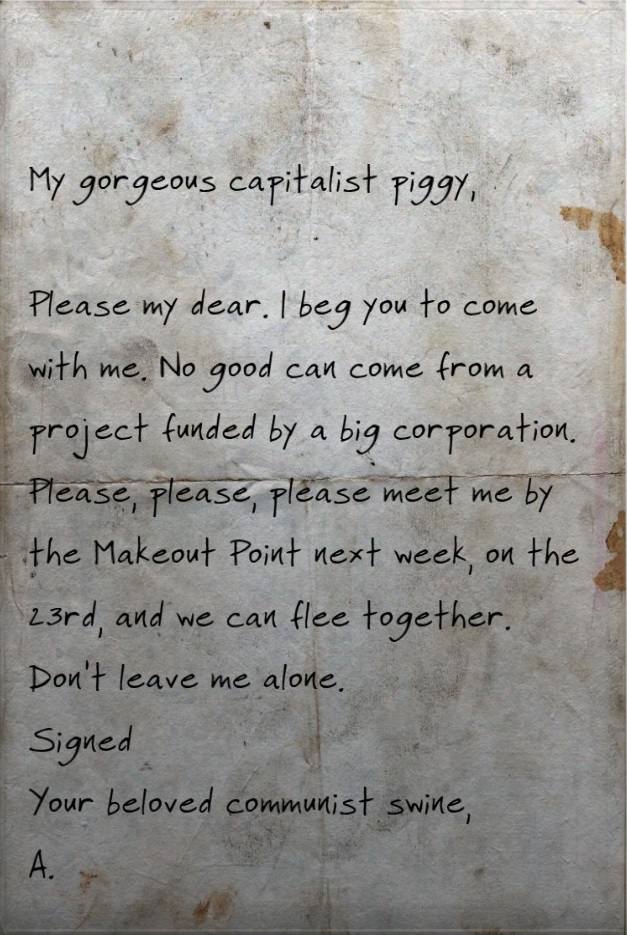 My gorgeous capitalist piggy,
Please my dear. I beg you to come
with me. No good can come from a
project funded by a big corporation.
Please, please, please meet me by
the Makeout Point next week, on the
23rd, and we can flee together.
Don't leave me alone.
Signed
Your beloved communist swine,
A.